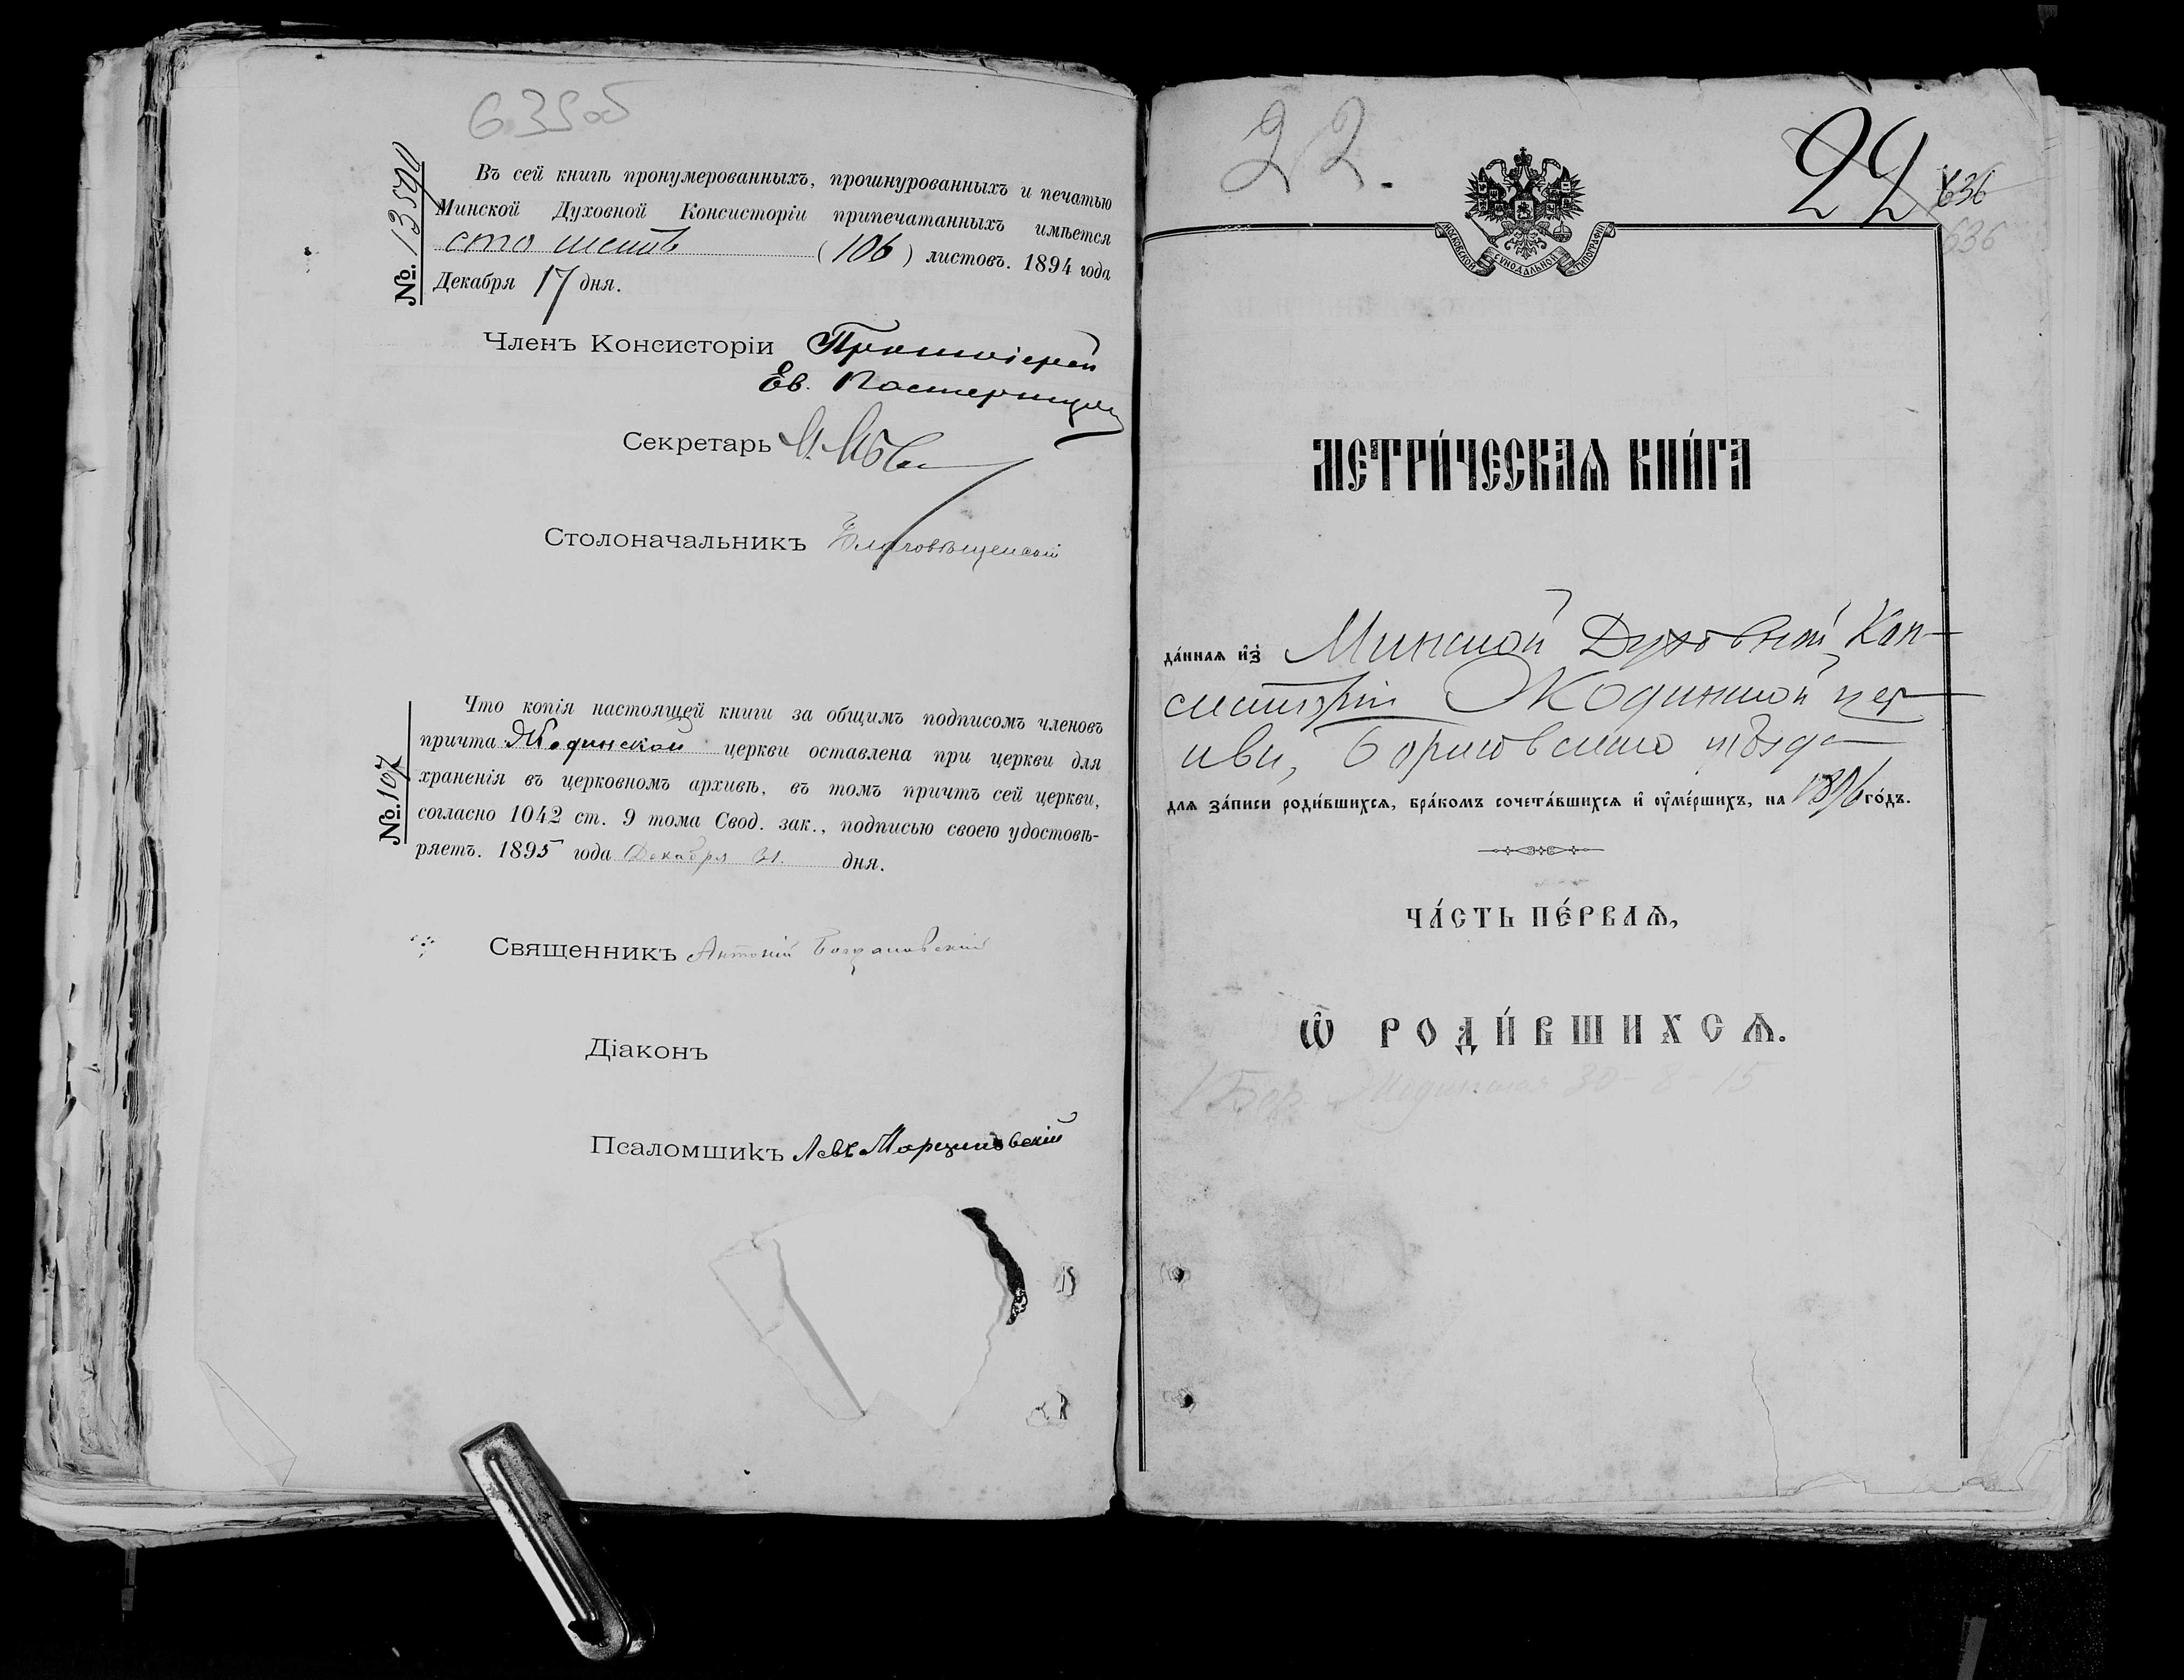 635об
№. 13590
Въ сей книгѣ пронумерованныхъ, прошнурованныхъ и печатью
Минской Духовной Консисторіи припечатанныхъ имѣется
сто шесть (106) листовъ. 1894 года
Декабря 17 дня.
Членъ Консисторіи Протоіерей
Ев.
Секретарь
Столоначальникъ Благовѣщенскій
№. 107
Что копія настоящей книги за общимъ подписомъ членовъ
причта Жодинской церкви оставлена при церкви для
храненія въ церковномъ архивѣ, въ томъ причтъ сей церкви,
согласно 1042 ст. 9 тома Свод. зак., подписью своею удостовѣ-
ряетъ. 1895 года Декабря 31. дня.
Священникъ Антоній Богдановскій
Діаконъ
Псаломщикъ Левъ Марциновскій
22.
22
636
636
МОСКОВСКОЙ СѴНОДАЛЬНОЙ ТИПОГРАФІИ
МЕТРИ́ЧЕСКАѦ КНИ́ГА
да́ннаѧ и҆з̾ Минской Духовной Кон-
систоріи Жодинской цер-
кви, Борисовскаго уѣзда
для за́писи роди́вшихсѧ, бра́комъ сочета́вшихсѧ и҆ оу҆ме́ршихъ, на 1896 го́дъ.
ЧА́СТЬ ПЕ́РВАѦ,
Ѽ РОДИ́ВШИХСѦ.
Бор. Жодинская 30-8-15